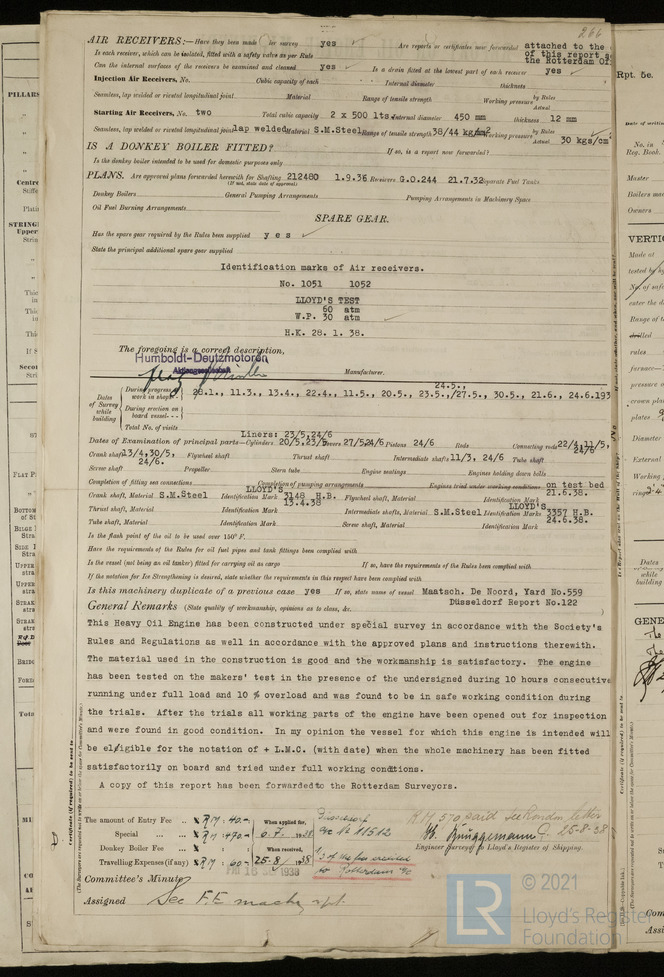 266
AIR RECEIVERS:—Have they been made under survey yes Are reports or certificates now forwarded attached to the
Is each receiver, which can be isolated, fitted with a safety valve as per Rule of this report
Can the internal surfaces of the receivers be examined and cleaned yes Is a drain fitted at the lowest part of each receiver yes
the Rotterdam
Injection Air Receivers, No. Cubic capacity of each Internal diameter thickness
Seamless, lap welded or riveted longitudinal joint Material Range of tensile strength Working pressure by Rules Actual
Starting Air Receivers, No. two Total cubic capacity 2 x 500 lts Internal diameter 450 mm thickness 12 mm
Seamless, lap welded or riveted longitudinal joint lap welded Material S.M.Steel Range of tensile strength 38/44 kg/mm2 Working pressure by Rules Actual 30 kgs/cm2
IS A DONKEY BOILER FITTED? If so, is a report now forwarded?
Is the donkey boiler intended to be used for domestic purposes only
PLANS. Are approved plans forwarded herewith for Shafting 212480 1.9.36 Receivers G.O.244 21.7.32 Separate Fuel Tanks
(If not, state date of approval)
Donkey Boilers General Pumping Arrangements Pumping Arrangements in Machinery Space
Oil Fuel Burning Arrangements
SPARE GEAR.
Has the spare gear required by the Rules been supplied yes
State the principal additional spare gear supplied
Identification marks of Air receivers.
No. 1051 1052
LLOYD'S TEST
60 atm
W.P. 30 atm
H.K. 28. 1. 38.
The foregoing is a correct description,
Humboldt-Deutzmotoren
Aktiengesellschaft
Manufacturer.
24.5.,
Dates of Survey while building
During progress of work in shops 28.1., 11.3., 13.4., 22.4., 11.5., 20.5., 23.5.,/27.5., 30.5., 21.6., 24.6.193
During erection on board vessel
Total No. of visits
Liners: 23/5, 24/6
Dates of Examination of principal parts—Cylinders 20/5, 23/5 Covers 27/5, 24/6 Pistons 24/6 Rods Connecting rods 22/4, 11/5, 24/6
Crank shaft 13/4, 30/5, 24/6. Flywheel shaft Thrust shaft Intermediate shafts 11/3, 24/6 Tube shaft
Screw shaft Propeller Stern tube Engine seatings Engines holding down bolts
Completion of fitting sea connections Completion of pumping arrangements Engines tried under working conditions on test bed 21.6.38.
Crank shaft, Material S.M.Steel Identification Mark LLOYD'S 3148 H.B. 13.4.38 Flywheel shaft, Material Identification Mark
Thrust shaft, Material Identification Mark Intermediate shafts, Material S.M.Steel Identification Marks LLOYD'S 3357 H.B. 24.6.38.
Tube shaft, Material Identification Mark Screw shaft, Material Identification Mark
Is the flash point of the oil to be used over 150° F.
Have the requirements of the Rules for oil fuel pipes and tank fittings been complied with
Is the vessel (not being an oil tanker) fitted for carrying oil as cargo If so, have the requirements of the Rules been complied with
If the notation for Ice Strengthening is desired, state whether the requirements in this respect have been complied with
Is this machinery duplicate of a previous case yes If so, state name of vessel Maatsch. De Noord, Yard No.559
Düsseldorf Report No.122
General Remarks (State quality of workmanship, opinions as to class, &c. )
This Heavy Oil Engine has been constructed under special survey in accordance with the Society's
Rules and Regulations as well in accordance with the approved plans and instructions therewith.
The material used in the construction is good and the workmanship is satisfactory. The engine
has been tested on the makers' test in the presence of the undersigned during 10 hours consecutive
running under full load and 10 % overload and was found to be in safe working condition during
the trials. After the trials all working parts of the engine have been opened out for inspection
and were found in good condition. In my opinion the vessel for which this engine is intended will
be eligible for the notation of + L.M.C. (with date) when the whole machinery has been fitted
satisfactorily on board and tried under full working conditions.
A copy of this report has been forwarded to the Rotterdam Surveyors.
The amount of Entry Fee RM : 40.- When applied for,
Special RM : 490.- 6.7. 1938
Donkey Boiler Fee When received,
Travelling Expenses (if any) RM : 60.- 25.8. 1938
Düsseldorf
1/3 of the fee credited
to Rotterdam
RM 570 paid see London letter
25-8-38
Engineer Surveyor to Lloyd's Register of Shipping.
Committee's Minute FRI 16 SEP 1938
Assigned See F.E. machy rpt.
© 2021
LR
Lloyd's Register
Foundation
Rpt. 5e.
PILLARS
No. in
Reg. Book.
Master
Boilers made
Owners
VERTIC
Made at
tested by
No. of safe
enter the
drilled
rules
pressure
crown plate
plates
Diameter
External
Working
Dates
while
building
GENE